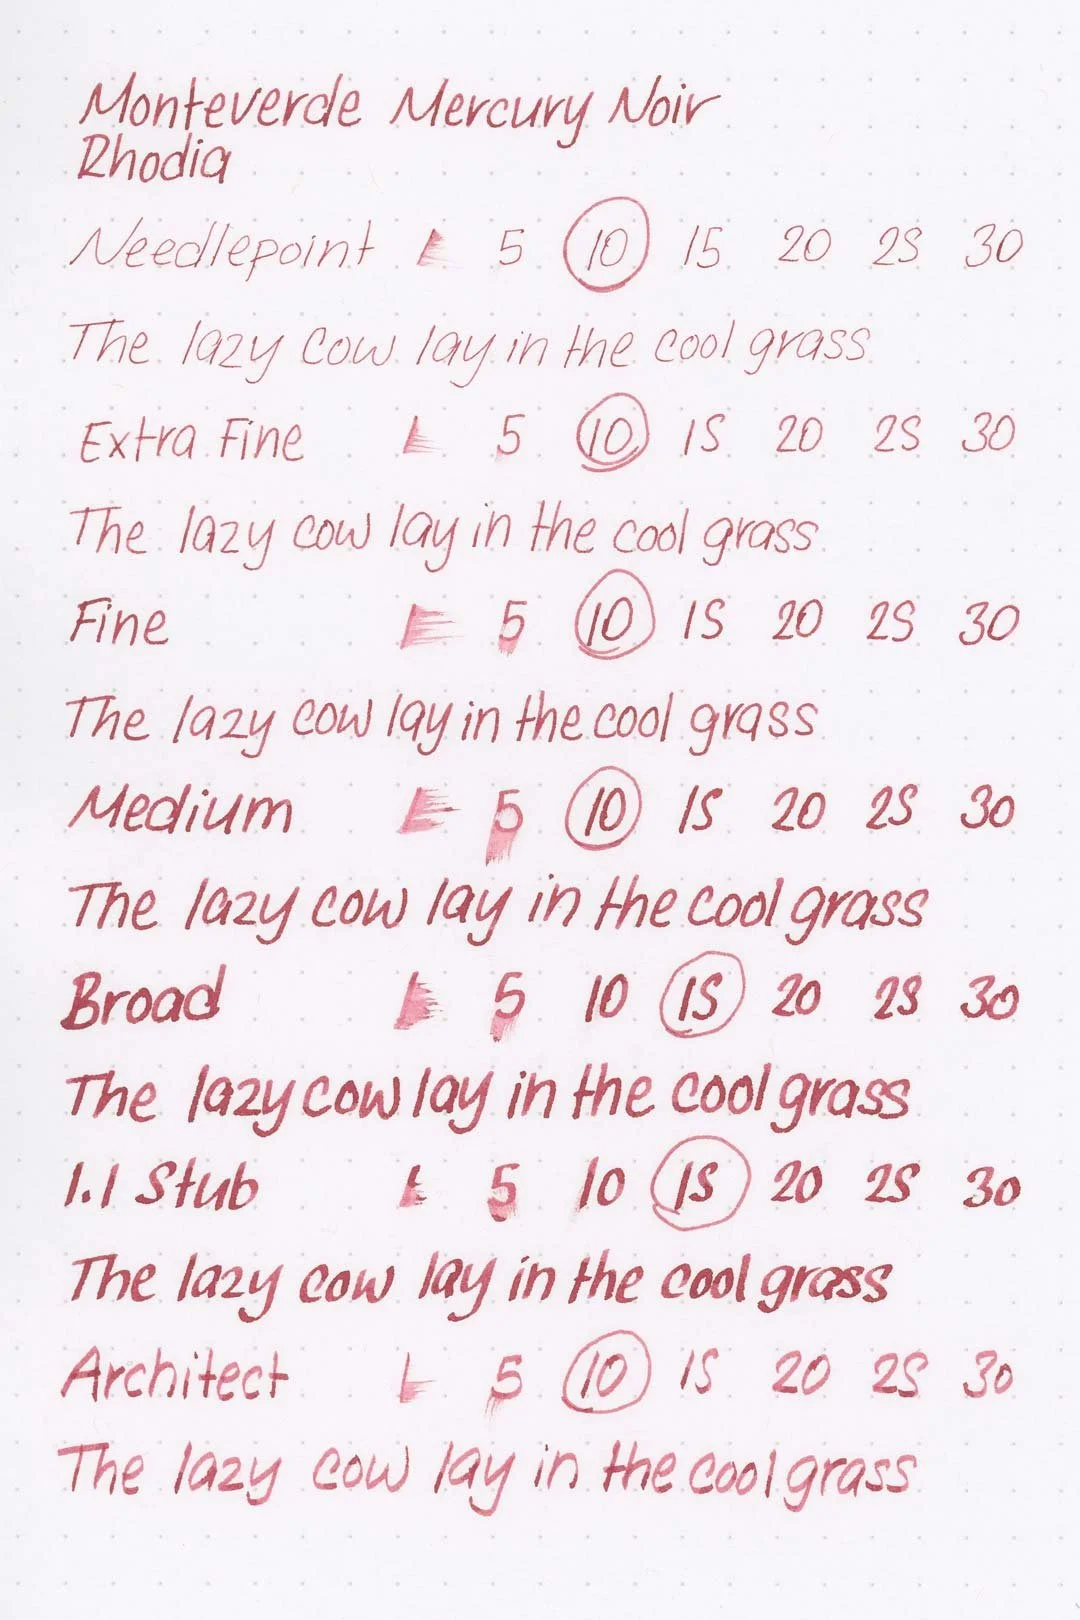 Monteverde Mercury Noir
Rhodia
Needlepoint L 5 10 15 20 25 30
The lazy cow lay in the cool grass
Extra Fine L 5 10 15 20 25 30
The lazy cow lay in the cool grass
Fine L 5 10 15 20 25 30
The lazy cow lay in the cool grass
Medium L 5 10 15 20 25 30
The lazy cow lay in the cool grass
Broad L 5 10 15 20 25 30
The lazy cow lay in the cool grass
1.1 Stub L 5 10 15 20 25 30
The lazy cow lay in the cool grass
Architect L 5 10 15 20 25 30
The lazy cow lay in the cool grass